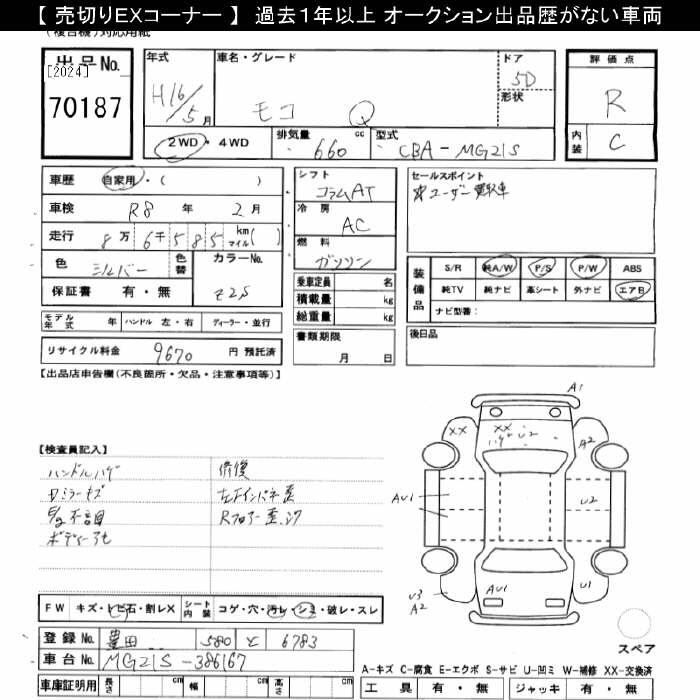 【 売切りEXコーナー 】 過去１年以上 オークション出品歴がない車両
(複合機)対応用紙
出品No. [2024] 70187
年式 H16/5月
車名・グレード モコ Q
ドア 5D
形状
評価点 R
内装 C
2WD・4WD
排気量 660 cc
型式 CBA-MG21S
車歴 自家用・( )
車検 R8 年 2 月
走行 8万 6千 5 8 5 km マイル( )
色 シルバー 色替
カラーNo. Z2S
保証書 有・無
モデル年式 年 ハンドル 左・右 ディーラー・並行
リサイクル料金 9670 円 預託済
シフト コラムAT
冷房 AC
燃料 ガソリン
乗車定員 名
積載量 kg
総重量 kg
書類期限 月 日
セールスポイント
☆ユーザー買取車
装備品
S/R 純A/W P/S P/W ABS
純TV 純ナビ 革シート 外ナビ エアB
ナビ型番:
後日品
【出品店申告欄(不良箇所・欠品・注意事項等)】
【検査員記入】
ハンドルハゲ
ミラーキズ
ボディー
修復
左Fインパネ歪
Rフロアー歪.
A1
XX
XX
ハゲ U2
A2
AU1
U2
AU1
U3
A2
U1
FW キズ・トビ石・割レX シート内装 コゲ・穴・汚レ・シミ・破レ・スレ
登録No. 豊田 580 と 6783
車台No. MG21S-386167
車庫証明用 長さ cm 幅 cm 高さ cm
スペア
A-キズ C-腐食 E-エクボ S-サビ U-凹ミ W-補修 XX-交換済
工具 有・無 ジャッキ 有・無